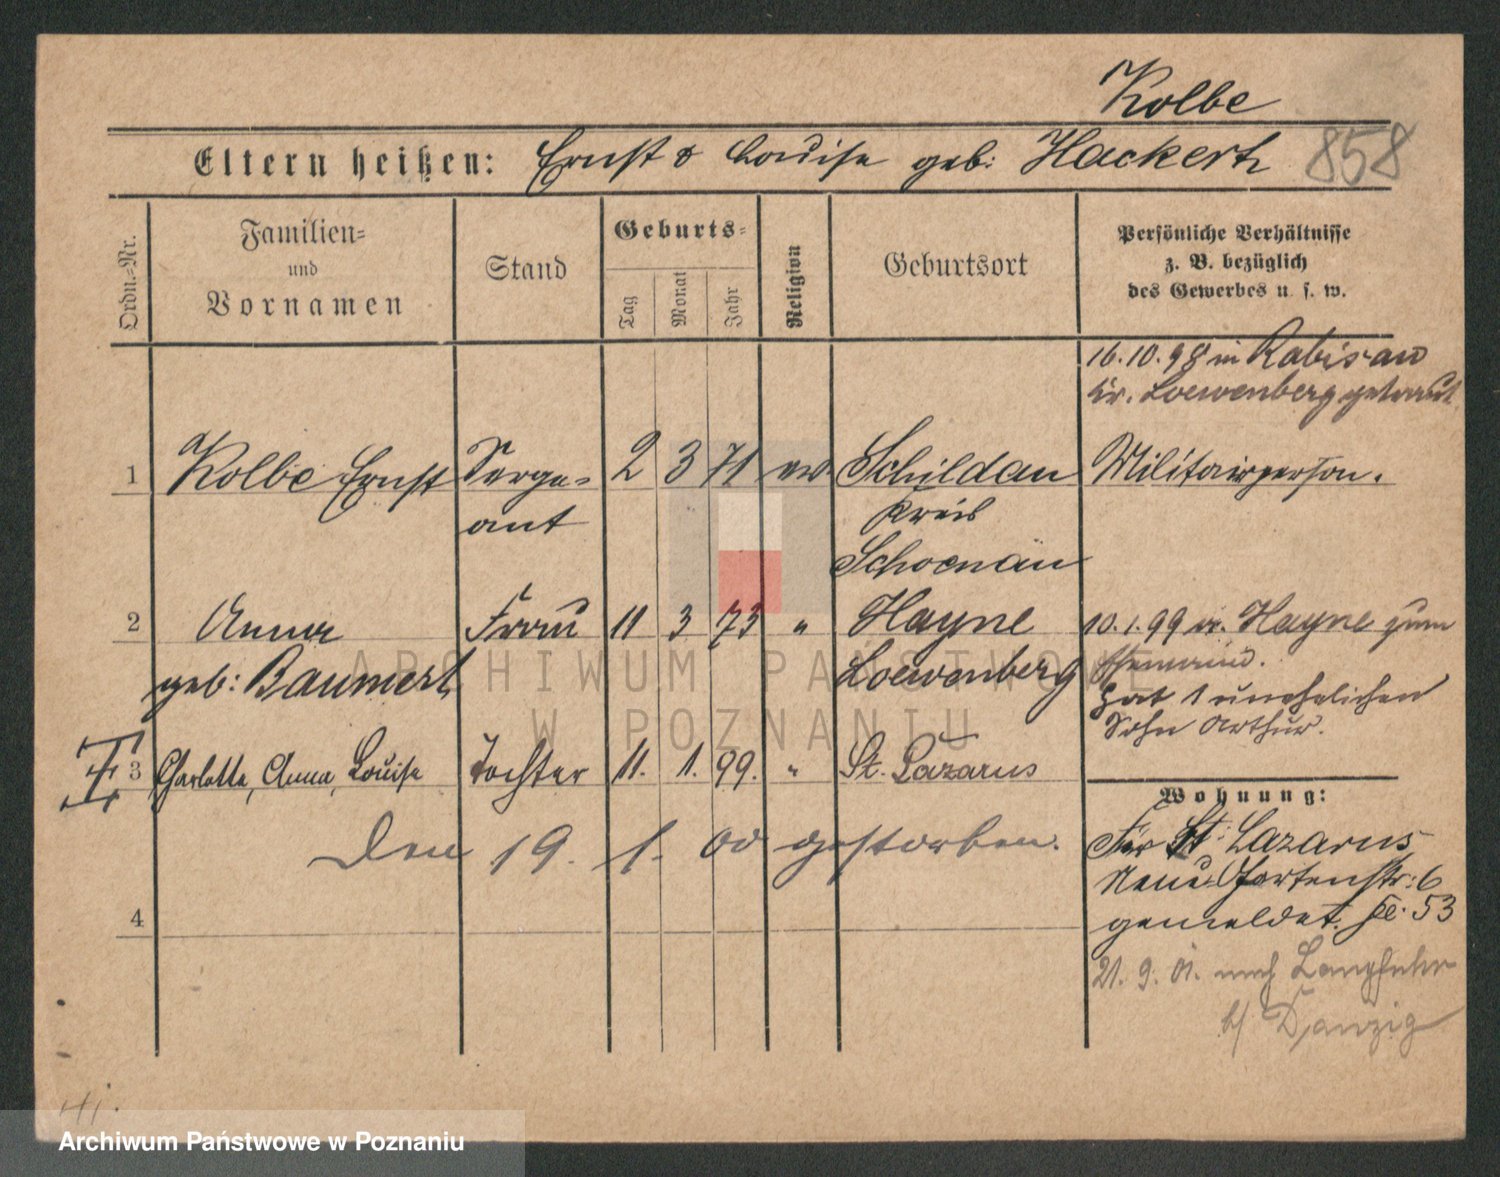 Kolbe
858
Eltern heißen: Ernst & Louise geb: Hackert
Ordn.-Nr.
Familien-
und
Vornamen
Stand
Geburts-
Tag
Monat
Jahr
Religion
Geburtsort
Persönliche Verhältnisse
z. B. bezüglich
des Gewerbes u. s. w.
16.10.98 in Rabisau
Kr. Loewenberg getraut
1 Kolbe Ernst Serge- 2 3 71 ev. Schildau Militairperson.
ant Kreis
Schoenau
2 Anna Frau 11 3 73 " Hayne 10.1.99 v. Hayne zum
geb: Baumert Loewenberg Ehemann.
Hat 1 unehelichen
Sohn Arthur.
3 Charlotte, Anna, Louise Tochter 11. 1. 99. " St. Lazarus
den 19. 1. 00 gestorben.
4
Wohnung:
Für St. Lazarus
Neue Gartenstr: 6
gemeldet. 53
21. 9. 01. nach Langfuhr
b/ Danzig
ARCHIWUM PAŃSTWOWE
W POZNANIU
Archiwum Państwowe w Poznaniu